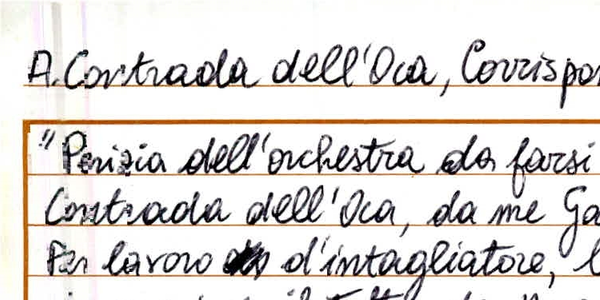 A. Contrada dell'Oca, Corrispon
"Perizia dell'orchestra da farsi
Contrada dell'Oca, da me Ga
Per lavoro d'intagliatore, l